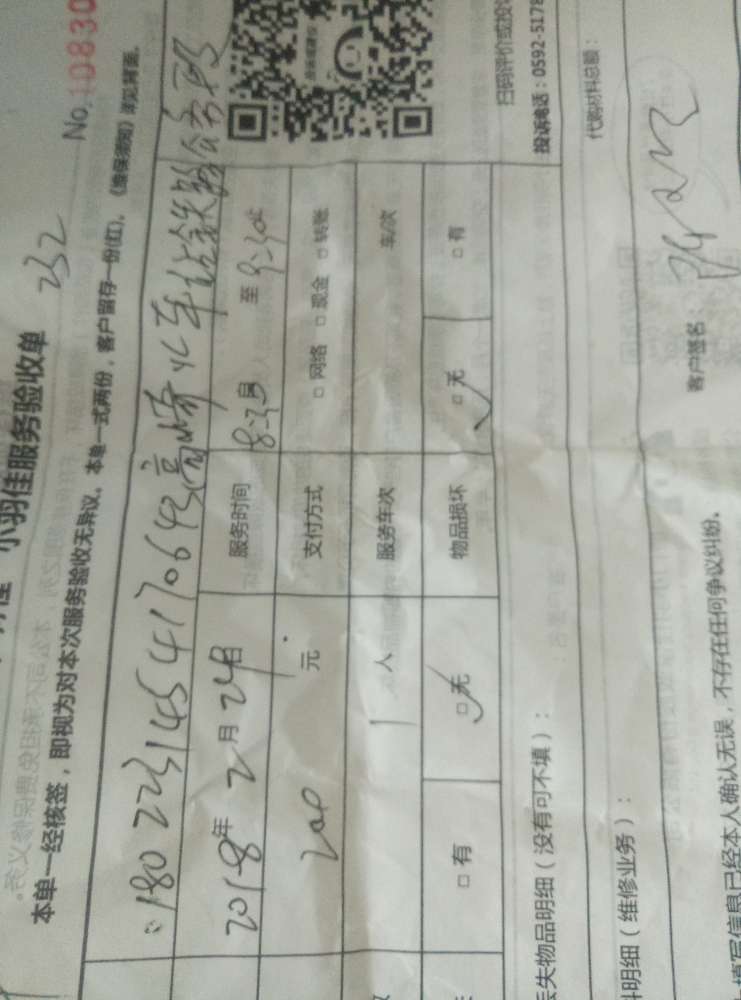 小羽佳服务验收单 232 No.10830
本单一经核签，即视为对本次服务验收无异议。本单一式两份，客户留存一份(红)。《维保须知》详见背面。
1802231454170643高崎火车站铁路公安
2018年2月24日 服务时间 8:30 至 9:30
200 元 支付方式 □网络 □现金 □转账
1 人 服务车次 车/次
□有 □无 物品损坏 □无 □有
扫码评价或投诉
投诉电话：0592-5178
丢失物品明细（没有可不填）：
代购材料总额：
料明细（维修业务）：
填写信息已经本人确认无误，不存在任何争议纠纷。 客户签名：